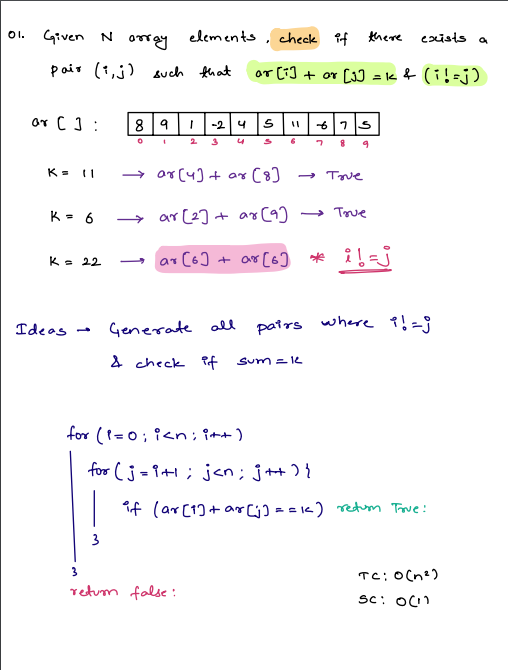 01. Given N array elements, check if there exists a
pair (i,j) such that ar[i] + ar[j] = k & (i!=j)
ar[]: 8 9 1 -2 4 5 11 -6 7 5
0 1 2 3 4 5 6 7 8 9
K = 11 → ar[4] + ar[8] → True
K = 6 → ar[2] + ar[9] → True
K = 22 → ar[6] + ar[6] * i!=j
Ideas → Generate all pairs where i!=j
& check if sum=k
for (i=0; i<n; i++)
for (j=i+1; j<n; j++){
if (ar[i]+ar[j]==k) return True:
}
}
return false:
TC: O(n²)
SC: O(1)